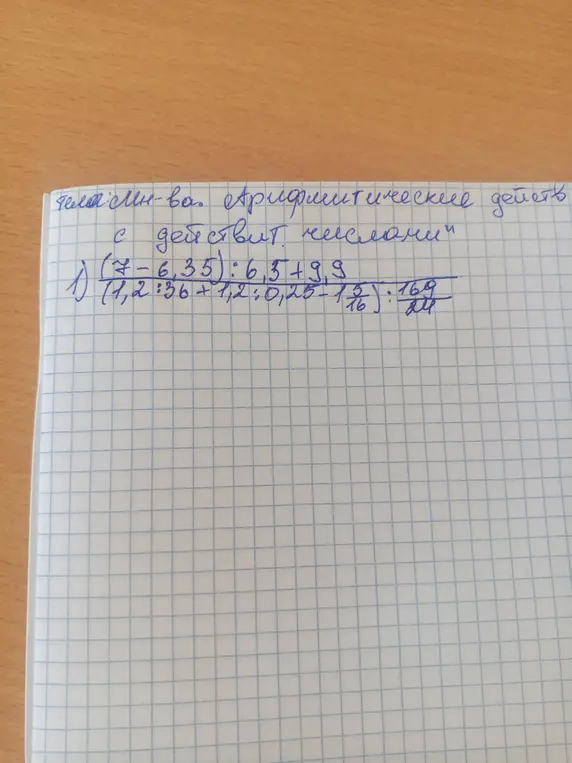 Тема: Мн-ва. Арифмитические действ
с действит. числами"
1) (7 - 6,35) : 6,5 + 9,9
(1,2 : 36 + 1,2 : 0,25 - 1 5/16) : 169/24